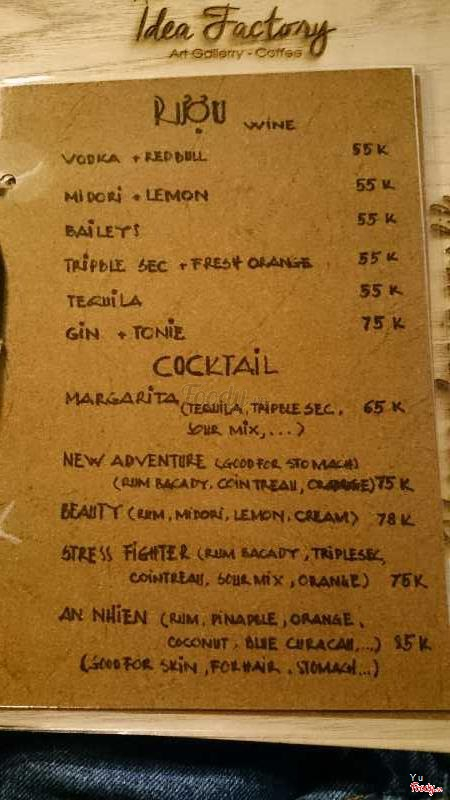 Idea Factory
Art Gallerry - Coffee
RƯỢU WINE
VODKA + REDBULL 55K
MIDORI + LEMON 55K
BAILEYS 55K
TRIPBLE SEC + FRESH ORANGE 55K
TEQUILA 55K
GIN + TONIE 75K
COCKTAIL
MARGARITA (TEQUILA, TRIPBLE SEC, 65K
SOUR MIX, ...)
NEW ADVENTURE (GOOD FOR STOMACH)
(RUM BACADY, COINTREAU, ORANGE) 75K
BEAUTY (RUM, MIDORI, LEMON, CREAM) 78K
STRESS FIGHTER (RUM BACADY, TRIPLESEC,
COINTREAU, SOUR MIX, ORANGE) 75K
AN NHIEN (RUM, PINAPLE, ORANGE,
COCONUT, BLUE CURACAU,...) 85K
(GOOD FOR SKIN, FOR HAIR, STOMACH...)
Yu
Foody.vn